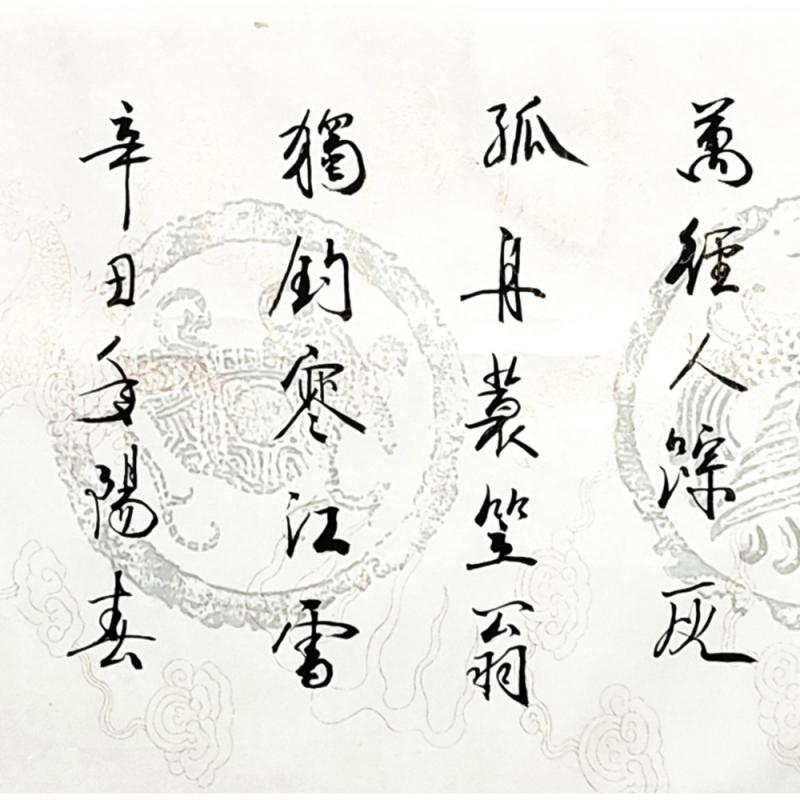 萬徑人踪灭
孤舟蓑笠翁
獨釣寒江雪
辛丑年陽春